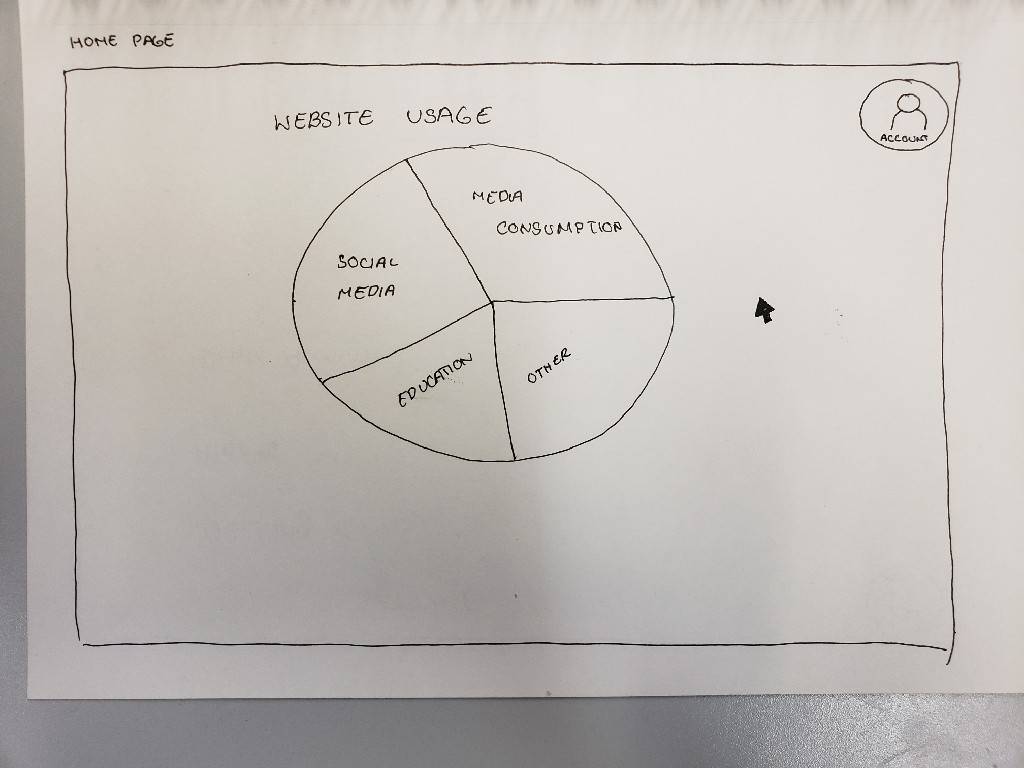 HOME PAGE
WEBSITE USAGE
ACCOUNT
MEDIA
CONSUMPTION
SOCIAL
MEDIA
EDUCATION
OTHER